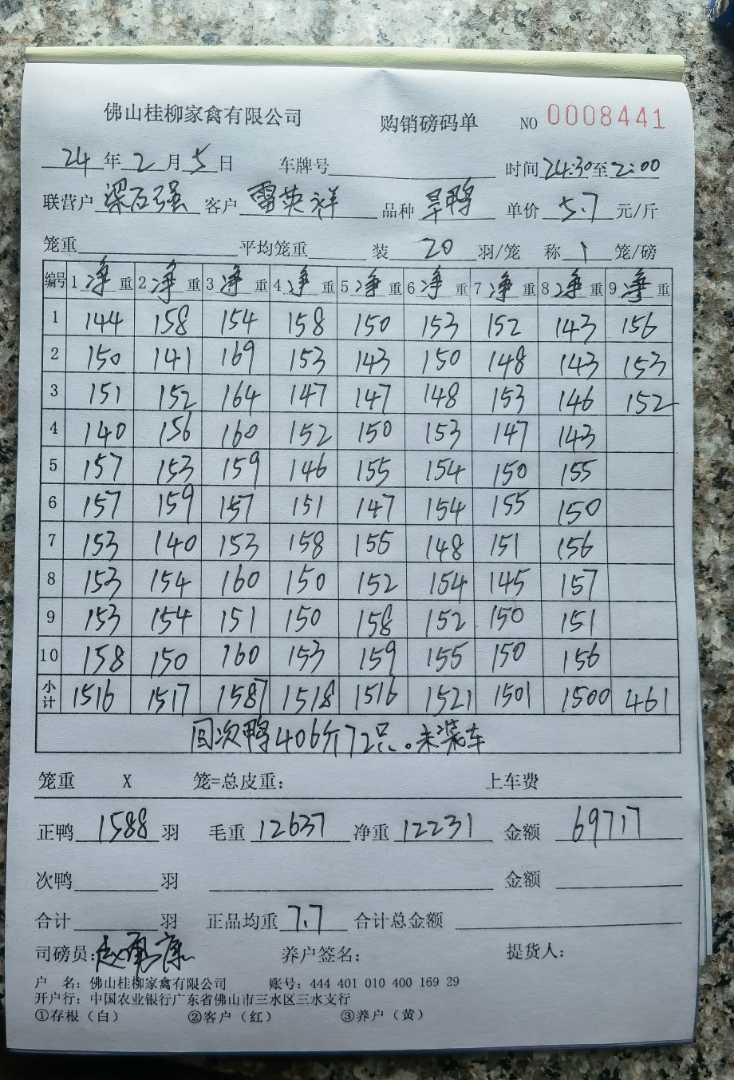 佛山桂柳家禽有限公司 购销磅码单 NO 0008441
24 年 2 月 5 日 车牌号 时间 24:30 至 2:00
联营户 梁石强 客户 雷英祥 品种 旱鸭 单价 5.7 元/斤
笼重 平均笼重 装 20 羽/笼 称 1 笼/磅
编号 1 净 重 2 净 重 3 净 重 4 净 重 5 净 重 6 净 重 7 净 重 8 净 重 9 净 重
1 144 158 154 158 150 153 152 143 156
2 150 141 169 153 143 150 148 143 153
3 151 152 164 147 147 148 153 146 152
4 140 156 160 152 150 153 147 143
5 157 153 159 146 155 154 150 155
6 157 159 157 151 147 154 155 150
7 153 140 153 158 155 148 151 156
8 153 154 160 150 152 154 145 157
9 153 154 151 150 158 152 150 151
10 158 150 160 153 159 155 150 156
小计 1516 1517 1587 1518 1516 1521 1501 1500 461
回次鸭406斤72只。未装车
笼重 X 笼=总皮重: 上车费
正鸭 1588 羽 毛重 12637 净重 12231 金额 69717
次鸭 羽 金额
合计 羽 正品均重 7.7 合计总金额
司磅员: 养户签名: 提货人:
户 名: 佛山桂柳家禽有限公司 账号: 444 401 010 400 169 29
开户行: 中国农业银行广东省佛山市三水区三水支行
①存根(白) ②客户(红) ③养户(黄)